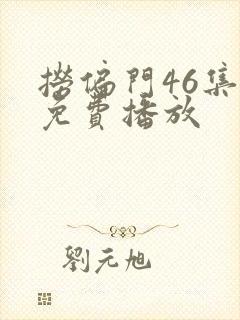 撈偏門46集
免費播放
劉元旭